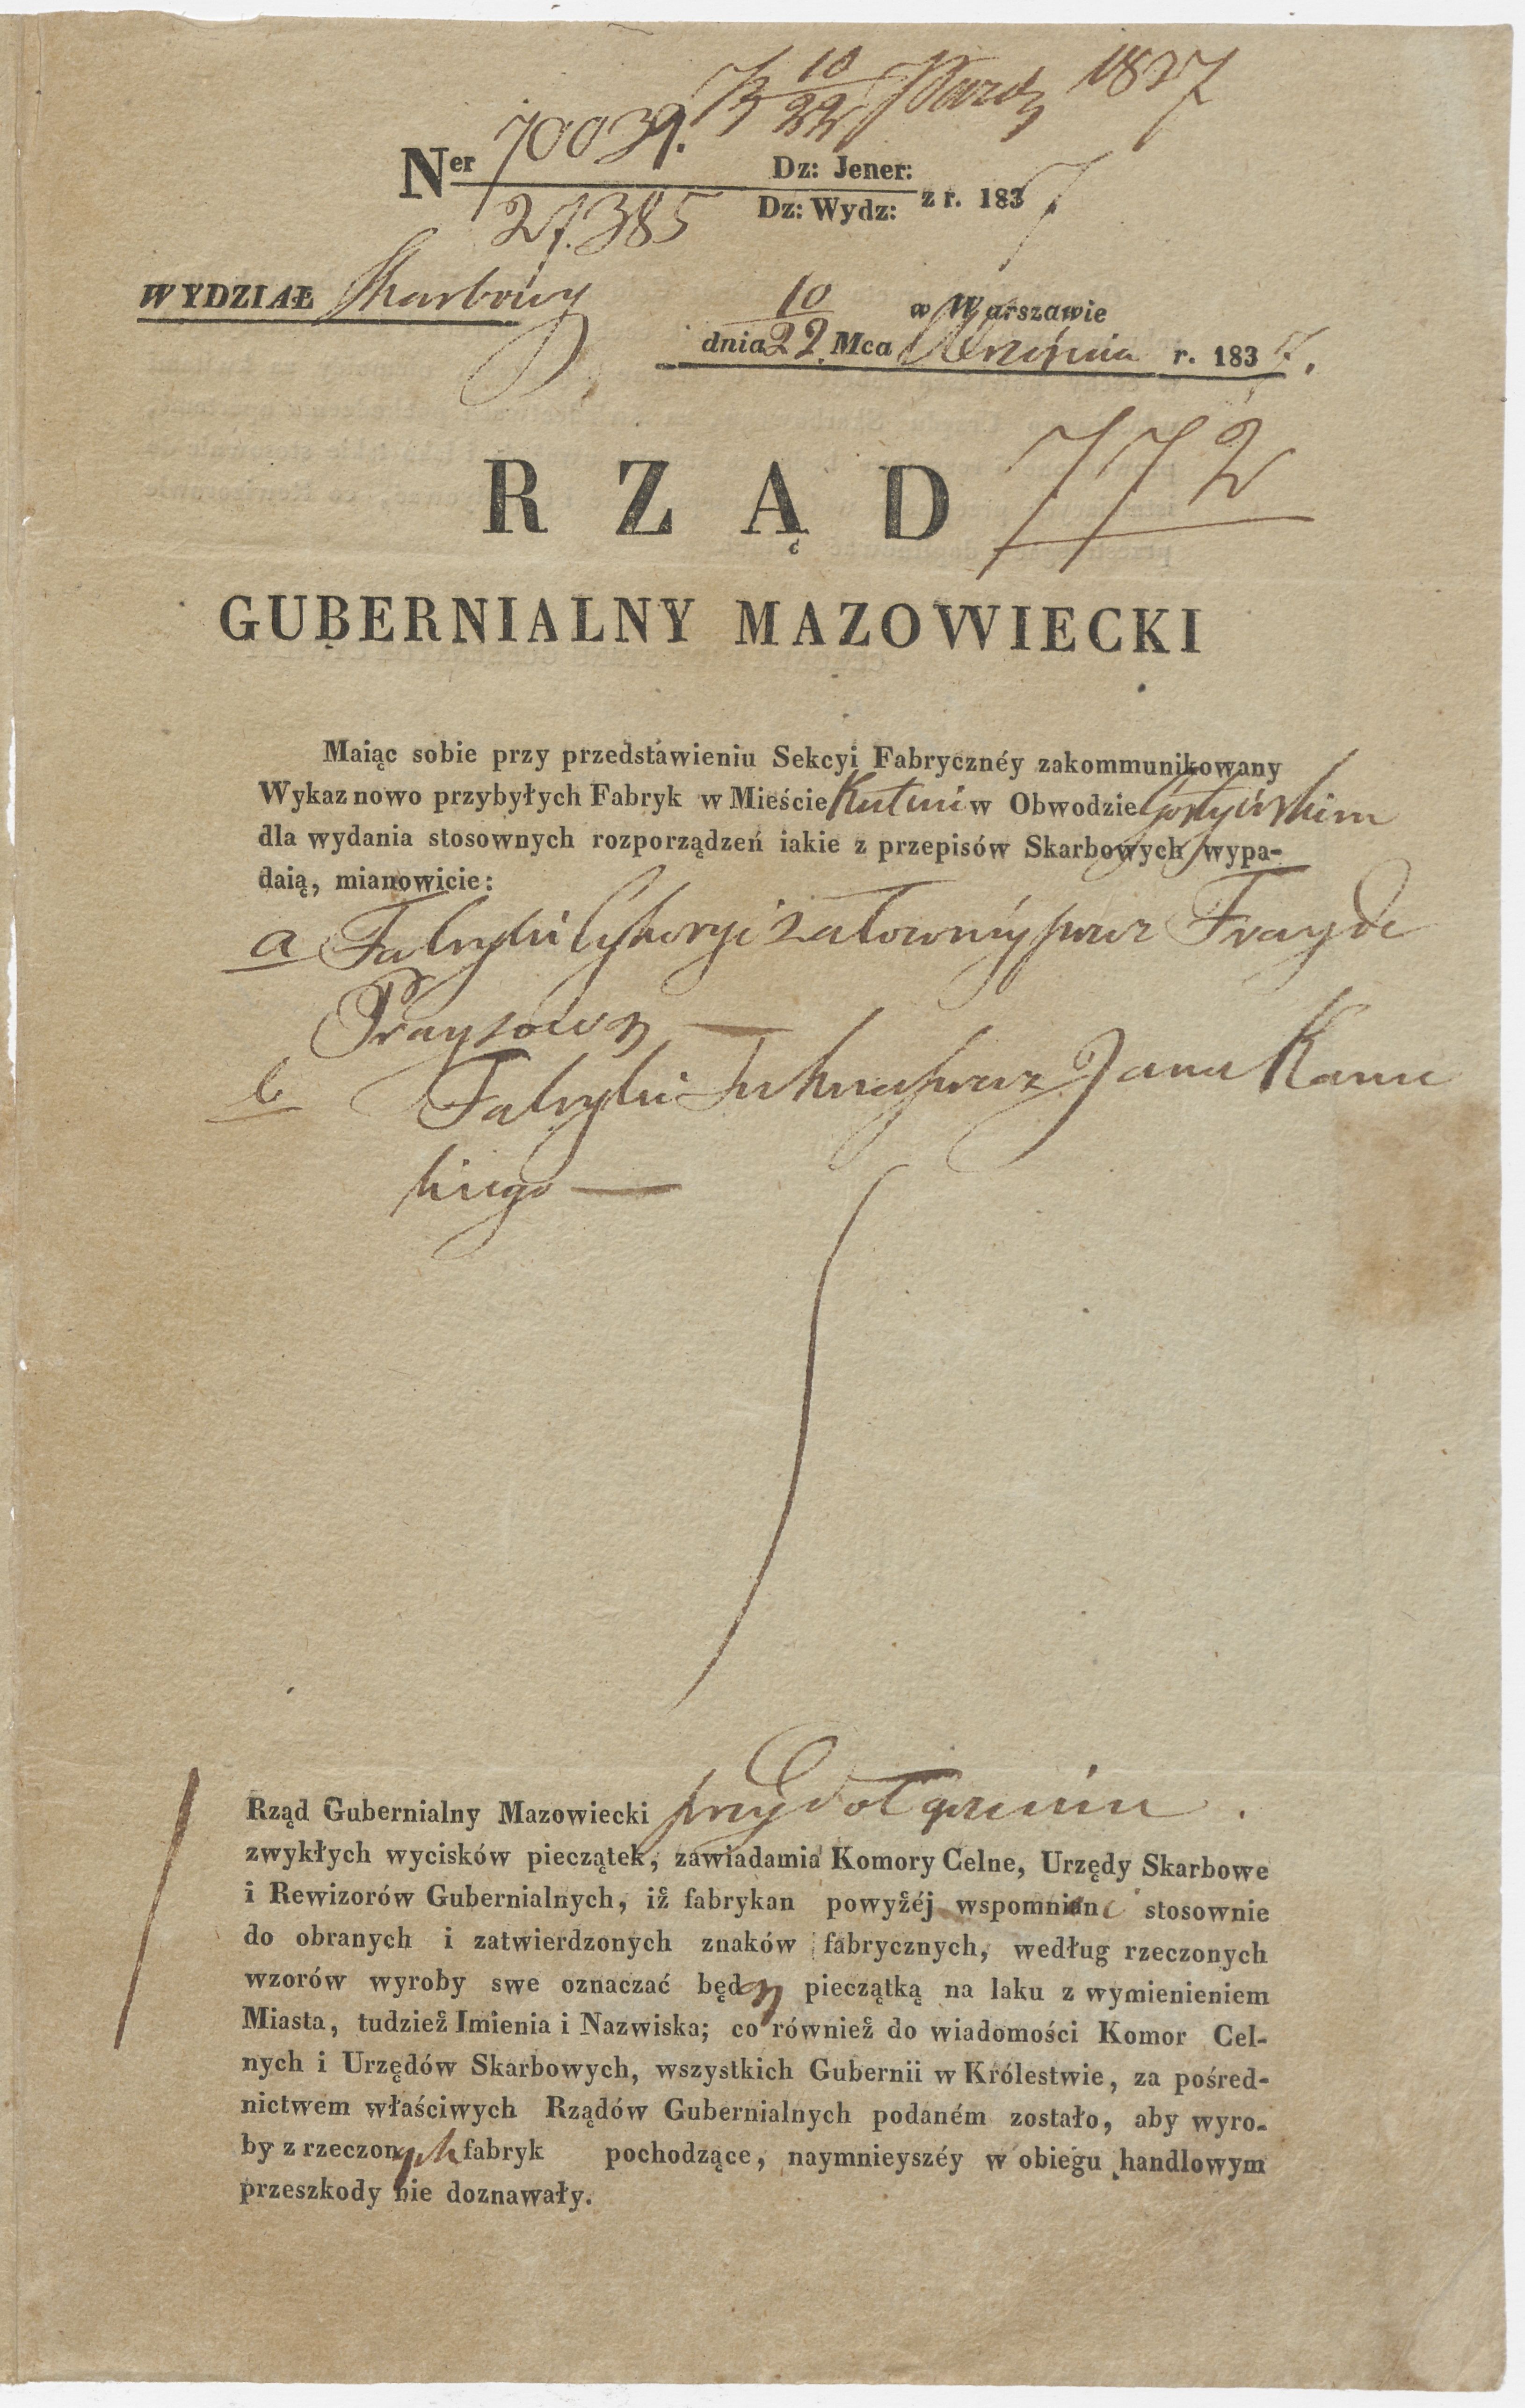 10
22 Paźdz 1837
Ner 70039. Dz: Jener: z r. 1837
27.385 Dz: Wydz:
WYDZIAŁ Skarbowy
10 w Warszawie
dnia 22. Mca Września r. 1837.
RZĄD 772
GUBERNIALNY MAZOWIECKI
Maiąc sobie przy przedstawieniu Sekcyi Fabrycznéy zakommunikowany
Wykaz nowo przybyłych Fabryk w Mieście Kutnie w Obwodzie Gostyńskim
dla wydania stosownych rozporządzeń iakie z przepisów Skarbowych wypa-
daią, mianowicie:
a Fabryki Cykoryi założonéy przez Frayde
Praysową —
b Fabryki Sukna przez Jana Kanic
kiego —
Rząd Gubernialny Mazowiecki przy dołączeniu
zwykłych wycisków pieczątek, zawiadamia Komory Celne, Urzędy Skarbowe
i Rewizorów Gubernialnych, iż fabrykan powyżéj wspomnieni stosownie
do obranych i zatwierdzonych znaków fabrycznych, według rzeczonych
wzorów wyroby swe oznaczać będą pieczątką na laku z wymienieniem
Miasta, tudzież Imienia i Nazwiska; co również do wiadomości Komor Cel-
nych i Urzędów Skarbowych, wszystkich Gubernii w Królestwie, za pośred-
nictwem właściwych Rządów Gubernialnych podaném zostało, aby wyro-
by z rzeczonych fabryk pochodzące, naymnieyszéy w obiegu handlowym
przeszkody nie doznawały.